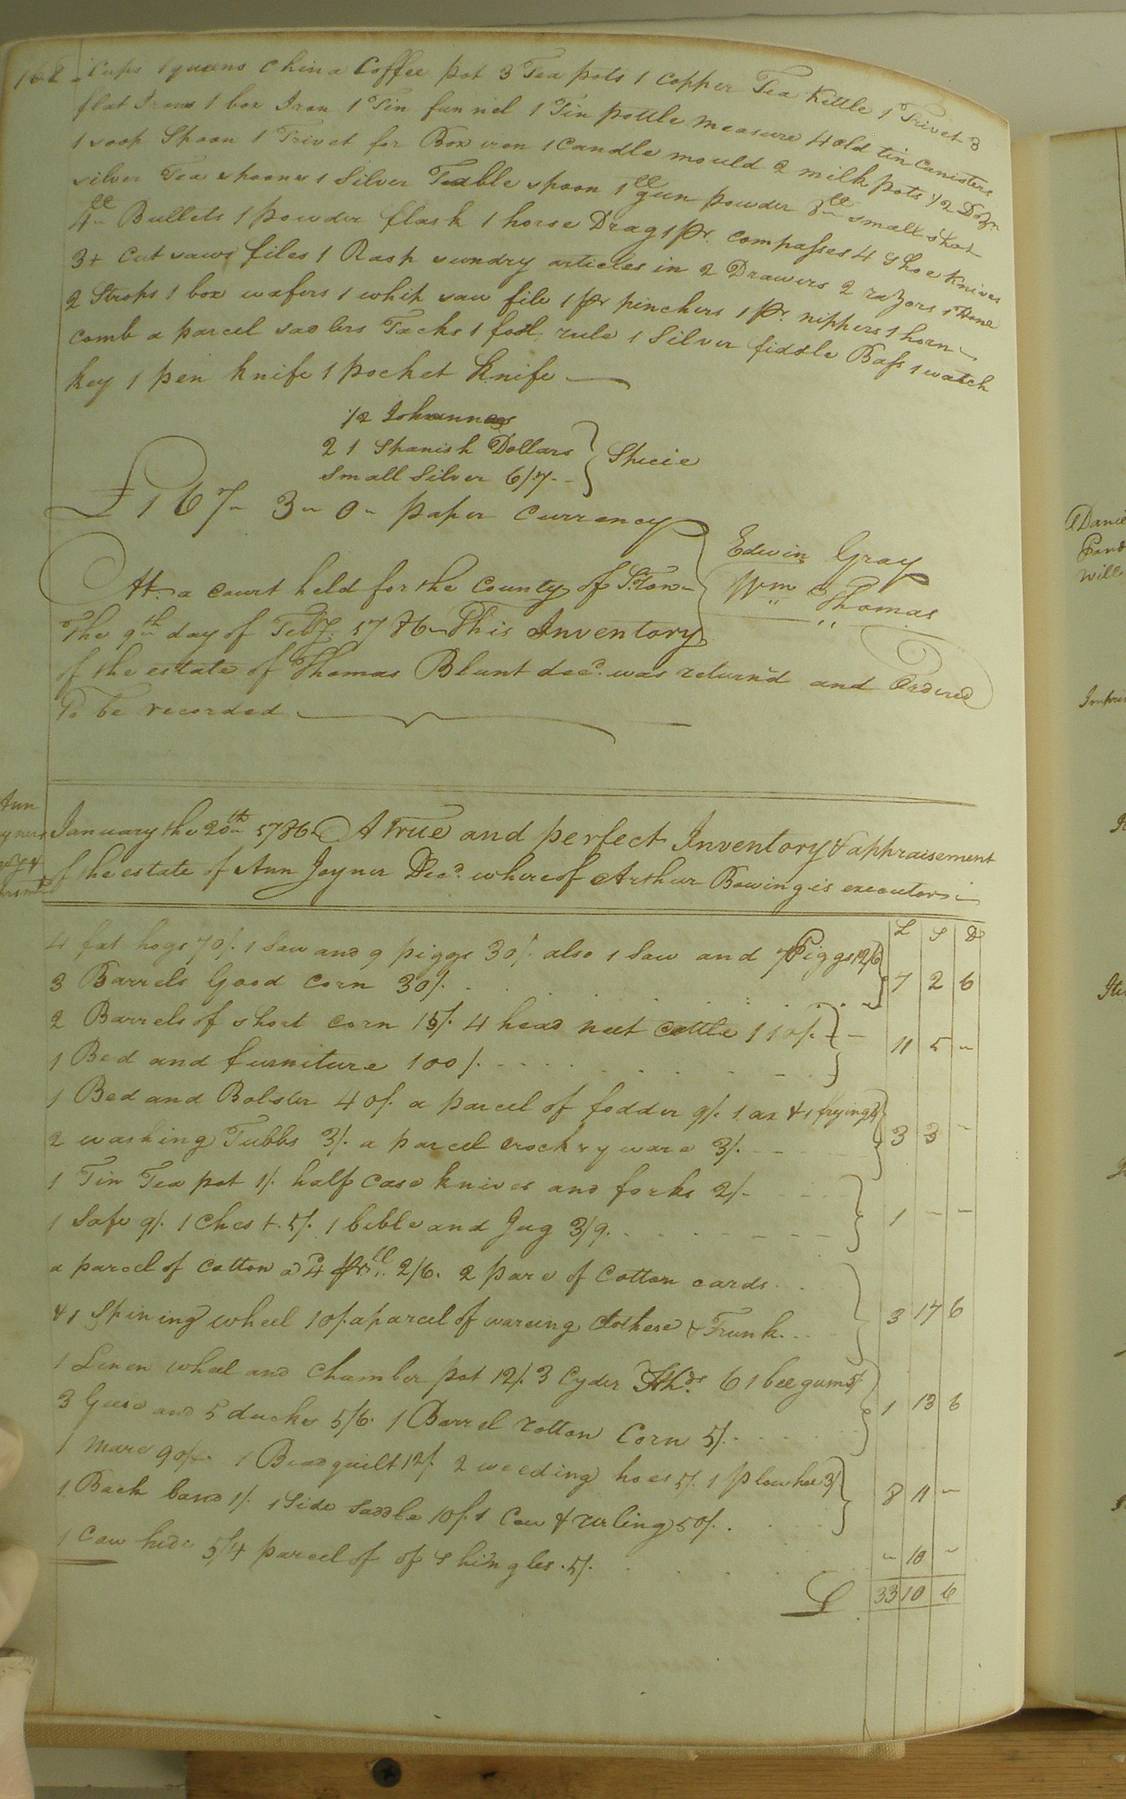 162 Cups 1 queens China Coffee pot 3 Tea pots 1 Copper Tea Kettle 1 Trivet 3
flat Irons 1 box Iron 1 Tin funnel 1 Tin pottle measure 4 old tin Canisters
1 soop Spoon 1 Trivet for Box iron 1 Candle mould 2 milk pots 1/2 Dozn
silver Tea spoons 1 Silver Teable spoon 1ll gun powder 3ll small shot
4ll Bullets 1 powder flask 1 horse Drag 1 pr. compasses 4 Shoe Knives
3 + Cut saws files 1 Rasp sundry articles in 2 Drawers 2 razors 1 Hone
2 Strops 1 box wafers 1 whip saw file 1 pr pinchers 1 pr. nippers 1 horn
comb a parcel sadlers Tacks 1 foot rule 1 Silver fiddle Bass 1 watch
key 1 pen knife 1 pocket Knife
1/2 Johannas
2 1 Spanish Dollars
Small Silver 6/7
} Specie
£167 " 3 " 0 " paper Currency
Edwin Gray
Wm Thomas
At a court held for the County of S:ton
The 9th day of Feby. 1786 This Inventory
of the estate of Thomas Blunt decd. was returnd and Ordered
To be recorded
Ann
January the 20th 1786 A True and perfect Inventory & appraisement
of the estate of Ann Joyner Decd. whereof Arthur Bowing is executor
£ S D
4 fat hogs 70/. 1 Saw and 9 piggs 30/. also 1 Saw and 7 Piggs 12/6
3 Barrels Good Corn 30/. 7 2 6
2 Barrels of short Corn 15/. 4 head neet Cattle 110/.
1 Bed and furniture 100/. 11 5 -
1 Bed and Bolster 40/. a parcel of fodder 9/. 1 ax & 1 frying
2 washing Tubbs 3/. a parcel crockry ware 3/. 3 3 -
1 Tin Tea pot 1/. half Case knives and forks 2/-
1 Safe 9/. 1 Chest 5/. 1 bible and Jug 3/9. 1 - -
a parcel of Cotton a 4 2/6. 2 pare of Cotton cards
& 1 Spining wheel 10/. a parcel of wareing Clothese & Trunk 3 17 6
1 Linen wheel and Chamber pot 12/. 3 Cyder Hhds 6 1 bee gum 5/
3 Geese and 5 ducks 5/6. 1 Barrel rotton Corn 5/. 1 13 6
1 mare 90/. 1 Bead quilt 12/. 2 weeding hoes 5/. 1 plow hoe 3/
1 Back band 1/. 1 Side Saddle 10/. 1 Cow & Yerling 50/. 8 11 -
1 Cow hide 5/4 parcel of of Shingles. 5/. - 10 -
£ 33 10 6